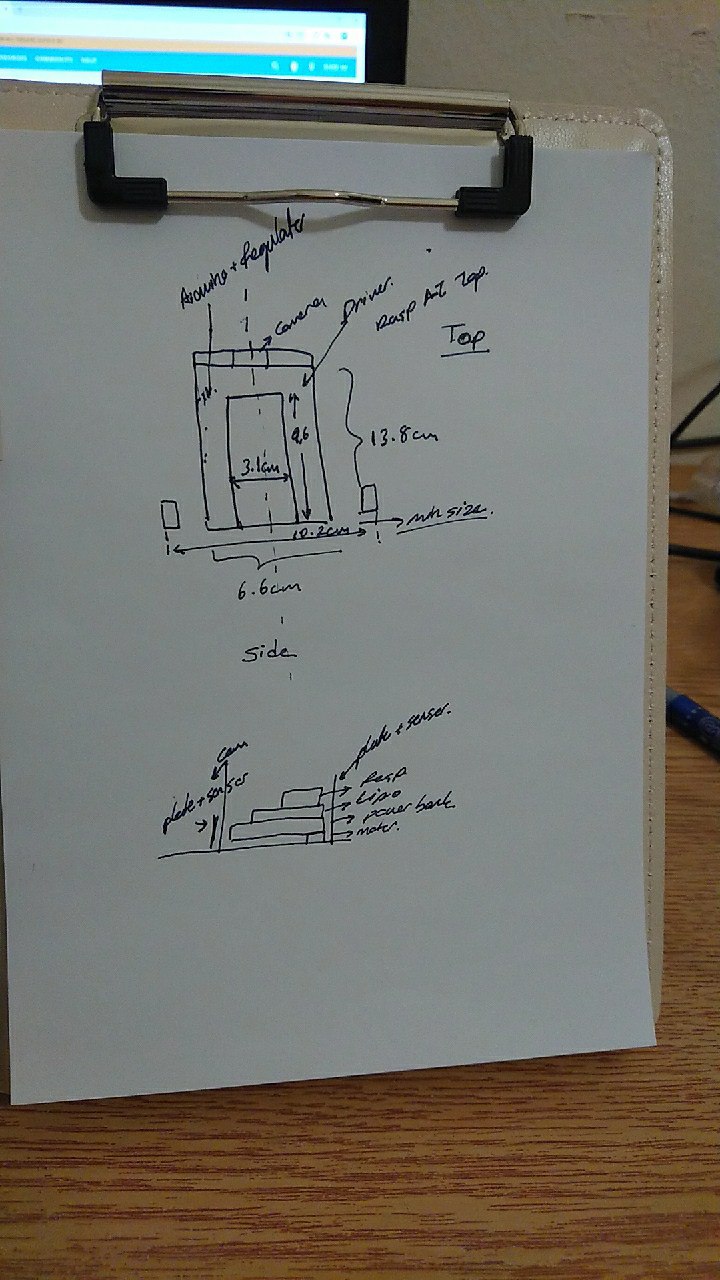 Arduino + Regulater
Camera
Driver.
Rasp At Top.
Top
13.8cm
9.6
3.1cm
10.2cm
min size.
6.6cm
Side
Cam
plate + sensor
plate + sensor.
Rasp
Lipo
power bank
moter.